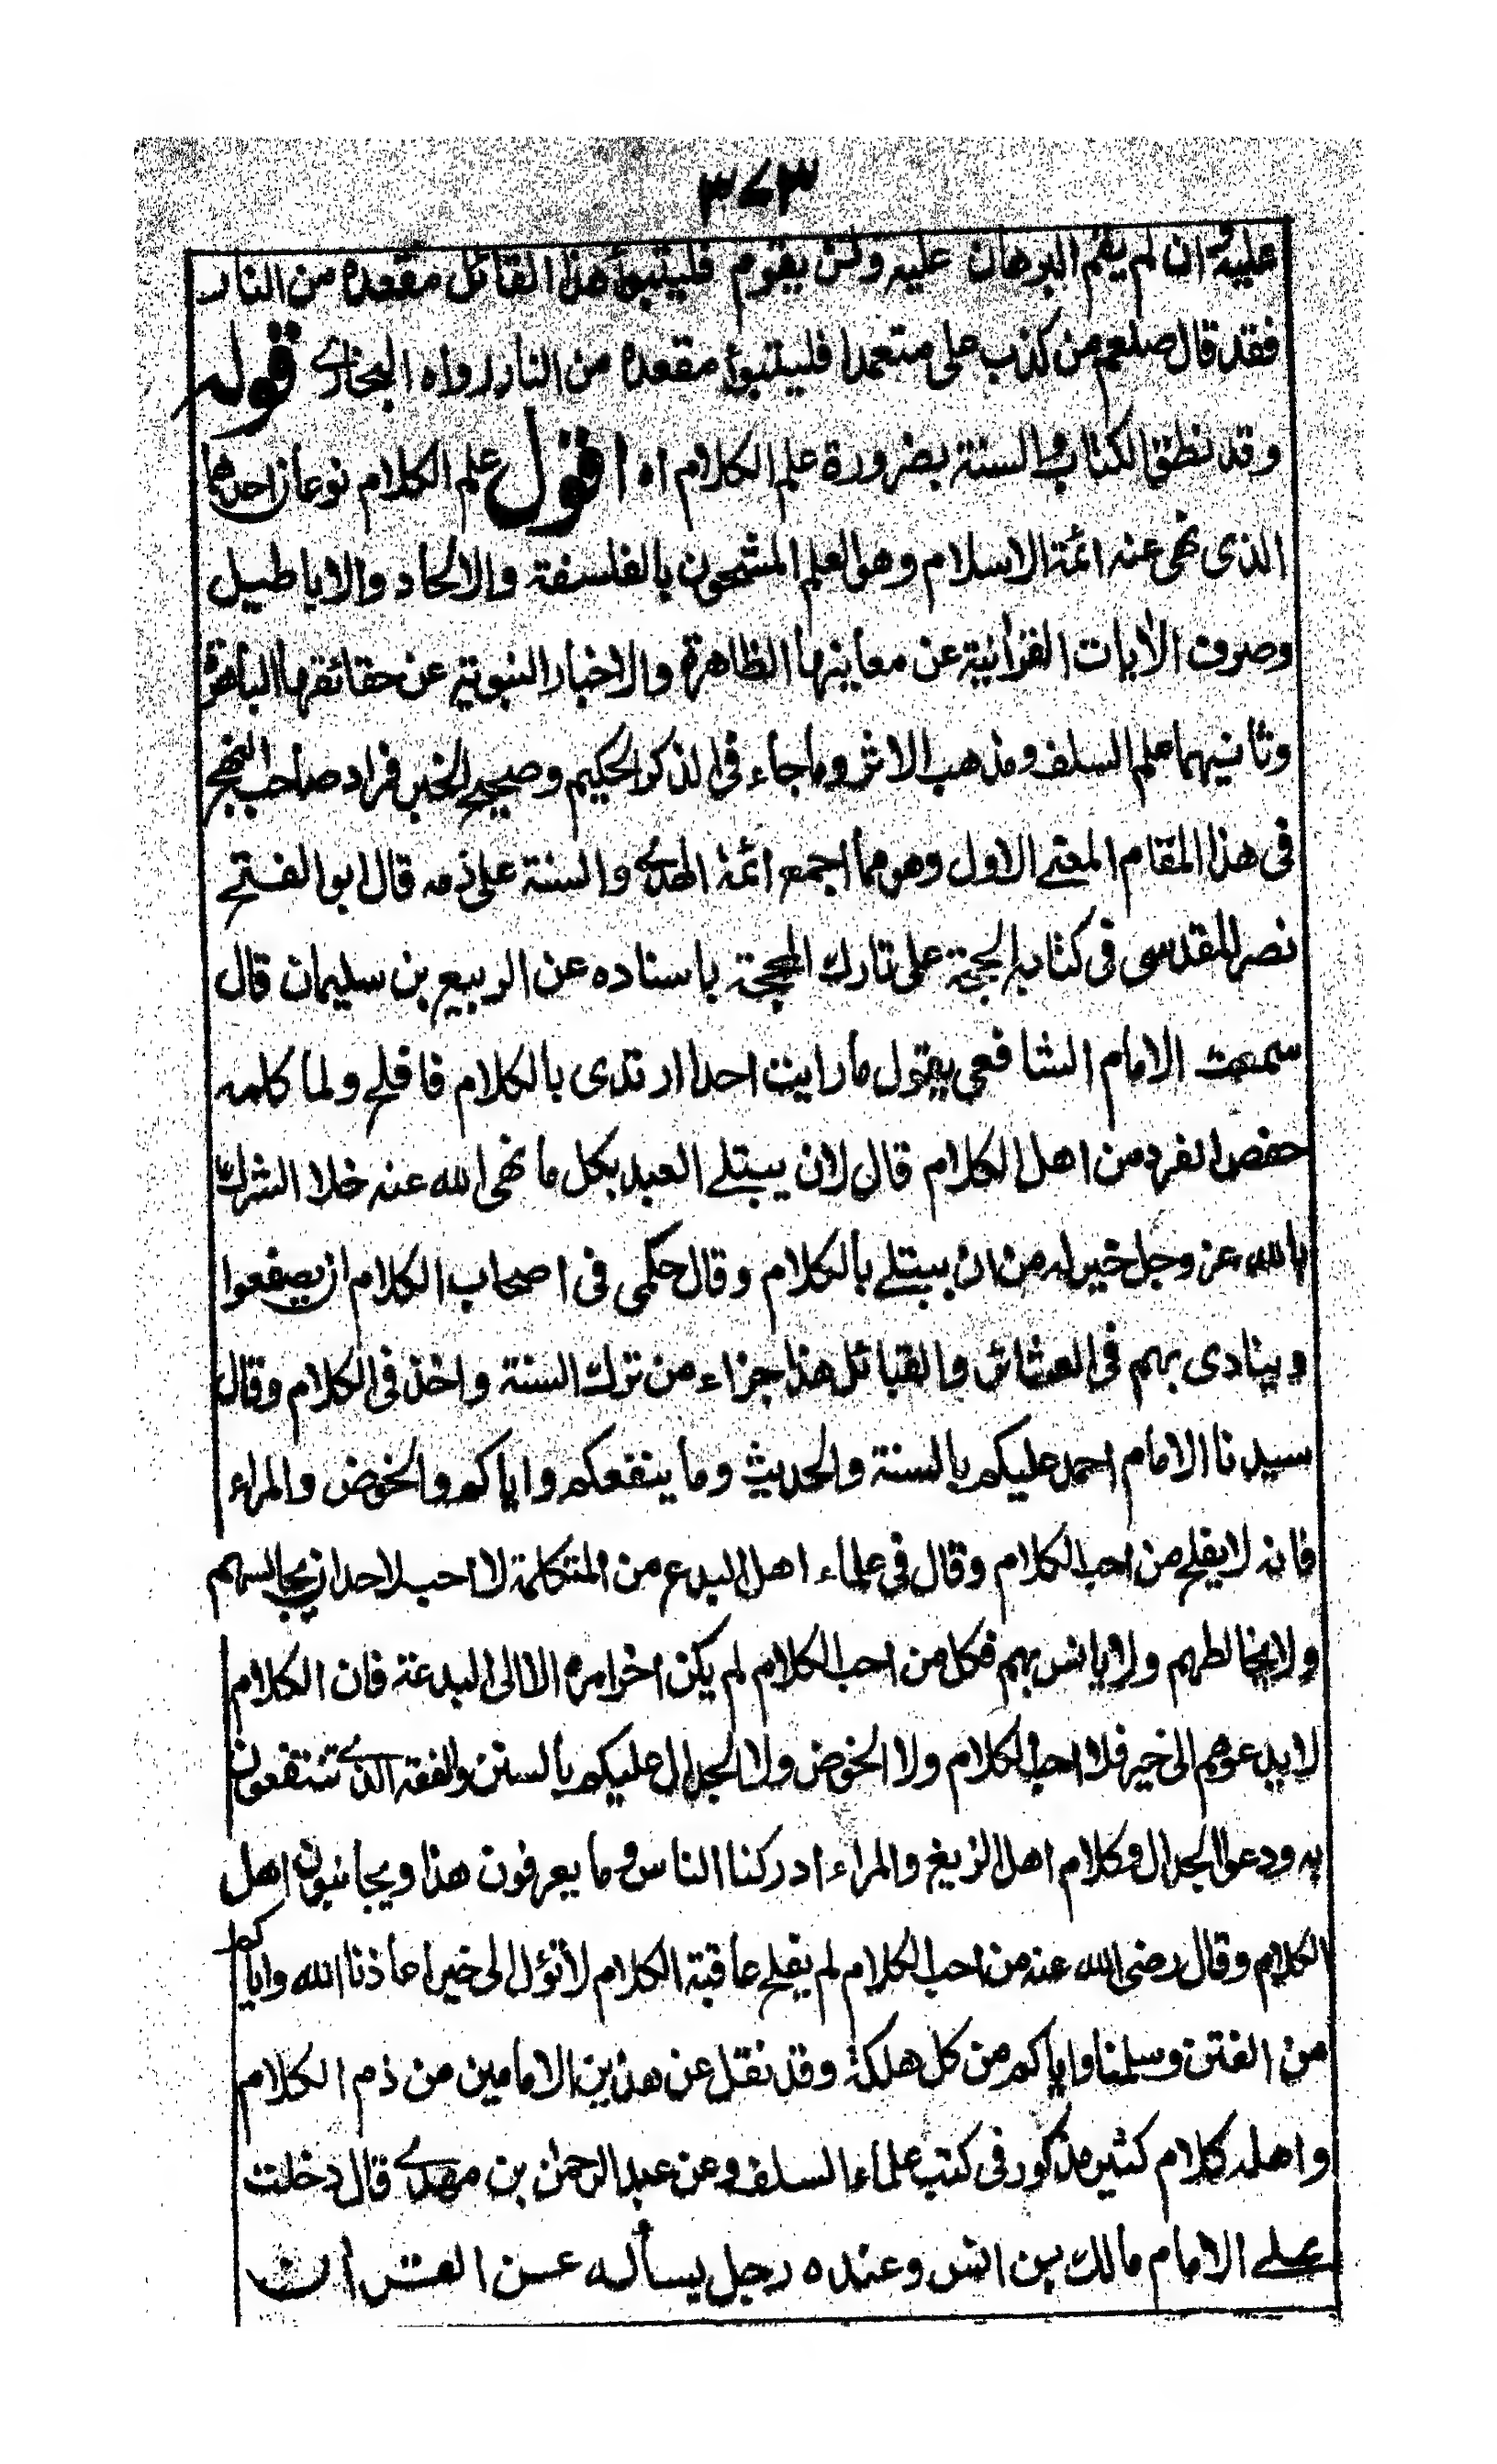 ٣٧٣
عليه ان لم يقم البرهان عليه ولن يقوم فليتبوأ هذا القائل مقعده من النار
فقد قال صلعم من كذب على متعمدا فليتبوأ مقعده من النار رواه البخاري قوله
وقد نطق الكتاب والسنة بضرورة علم الكلام اه اقول علم الكلام نوعان احدهما
الذى نهى عنه ائمة الاسلام وهو العلم المشحون بالفلسفة والالحاد والاباطيل
وصرف الآيات القرآنية عن معاينها الظاهرة والاخبار النبوية عن حقائقها الباهرة
وثانيهما علم السلف ومذهب الاثر وما جاء فى الذكر الحكيم وصحيح الخبر فراد صاحب النهج
فى هذا المقام المعنے الاول وهو مما اجمع ائمة الهدى والسنة على ذمه قال ابو الفتح
نصر المقدسى فى كتابه الحجة على تارك المحجة باسناده عن الربيع بن سليمان قال
سمعت الامام الشافعى يقول ما رايت احدا ارتدى بالكلام فافلح ولما كلمه
حفص الفرد من اهل الكلام قال لان يبتلے العبد بكل ما نهى الله عنه خلا الشرك
بالله عز وجل خير له من ان يبتلے بالكلام وقال حكمى فى اصحاب الكلام ان يصفعوا
وينادى بهم فى العشائر والقبائل هذا جزاء من ترك السنة واخذ فى الكلام وقال
سيدنا الامام احمد عليكم بالسنة والحديث وما ينفعكم واياكم والخوض والمراء
فانه لا يفلح من احب الكلام وقال فى علماء اهل البدع من المتكلمة لا احب لاحد ان يجالسهم
ولا يخالطهم ولا يانس بهم فكل من احب الكلام لم يكن اخر امره الا الى البدعة فان الكلام
لا يدعوهم الى خير فلا احب الكلام ولا الخوض ولا الجدال عليكم بالسنن والفقه الذے تنتفعون
به ودعوا الجدال وكلام اهل الزيغ والمراء ادركنا الناس وما يعرفون هذا ويجانبون اهل
الكلام وقال رضى الله عنه من احب الكلام لم يفلح عاقبة الكلام لا تؤل الى خير اعاذنا الله واياكم
من الفتن وسلمنا واياكم من كل هلكة وقد نقل عن هذين الامامين من ذم الكلام
واهله كلام كثير مذكور فى كتب علماء السلف وعن عبد الرحمن بن مهدے قال دخلت
علے الامام مالك بن انس وعنده رجل يسأله عن القرآن